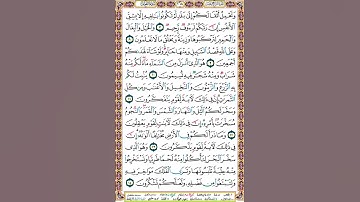 وَتَحْمِلُ أَثْقَالَكُمْ إِلَىٰ بَلَدٍ لَّمْ تَكُونُوا۟ بَٰلِغِيهِ إِلَّا بِشِقِّ
ٱلْأَنفُسِ إِنَّ رَبَّكُمْ لَرَءُوفٌ رَّحِيمٌ ۝ وَٱلْخَيْلَ وَٱلْبِغَالَ
وَٱلْحَمِيرَ لِتَرْكَبُوهَا وَزِينَةً وَيَخْلُقُ مَا لَا تَعْلَمُونَ ۝
وَعَلَى ٱللَّهِ قَصْدُ ٱلسَّبِيلِ وَمِنْهَا جَآئِرٌ وَلَوْ شَآءَ لَهَدَىٰكُمْ
أَجْمَعِينَ ۝ هُوَ ٱلَّذِىٓ أَنزَلَ مِنَ ٱلسَّمَآءِ مَآءً لَّكُم مِّنْهُ
شَرَابٌ وَمِنْهُ شَجَرٌ فِيهِ تُسِيمُونَ ۝ يُنۢبِتُ لَكُم
بِهِ ٱلزَّرْعَ وَٱلزَّيْتُونَ وَٱلنَّخِيلَ وَٱلْأَعْنَٰبَ وَمِن كُلِّ
ٱلثَّمَرَٰتِ إِنَّ فِى ذَٰلِكَ لَءَايَةً لِّقَوْمٍ يَتَفَكَّرُونَ ۝
وَسَخَّرَ لَكُمُ ٱلَّيْلَ وَٱلنَّهَارَ وَٱلشَّمْسَ وَٱلْقَمَرَ وَٱلنُّجُومُ
مُسَخَّرَٰتٌۢ بِأَمْرِهِۦٓ إِنَّ فِى ذَٰلِكَ لَءَايَٰتٍ لِّقَوْمٍ يَعْقِلُونَ
۝ وَمَا ذَرَأَ لَكُمْ فِى ٱلْأَرْضِ مُخْتَلِفًا أَلْوَٰنُهُۥٓ إِنَّ
فِى ذَٰلِكَ لَءَايَةً لِّقَوْمٍ يَذَّكَّرُونَ ۝ وَهُوَ ٱلَّذِى
سَخَّرَ ٱلْبَحْرَ لِتَأْكُلُوا۟ مِنْهُ لَحْمًا طَرِيًّا وَتَسْتَخْرِجُوا۟
مِنْهُ حِلْيَةً تَلْبَسُونَهَا وَتَرَى ٱلْفُلْكَ مَوَاخِرَ فِيهِ
وَلِتَبْتَغُوا۟ مِن فَضْلِهِۦ وَلَعَلَّكُمْ تَشْكُرُونَ ۝